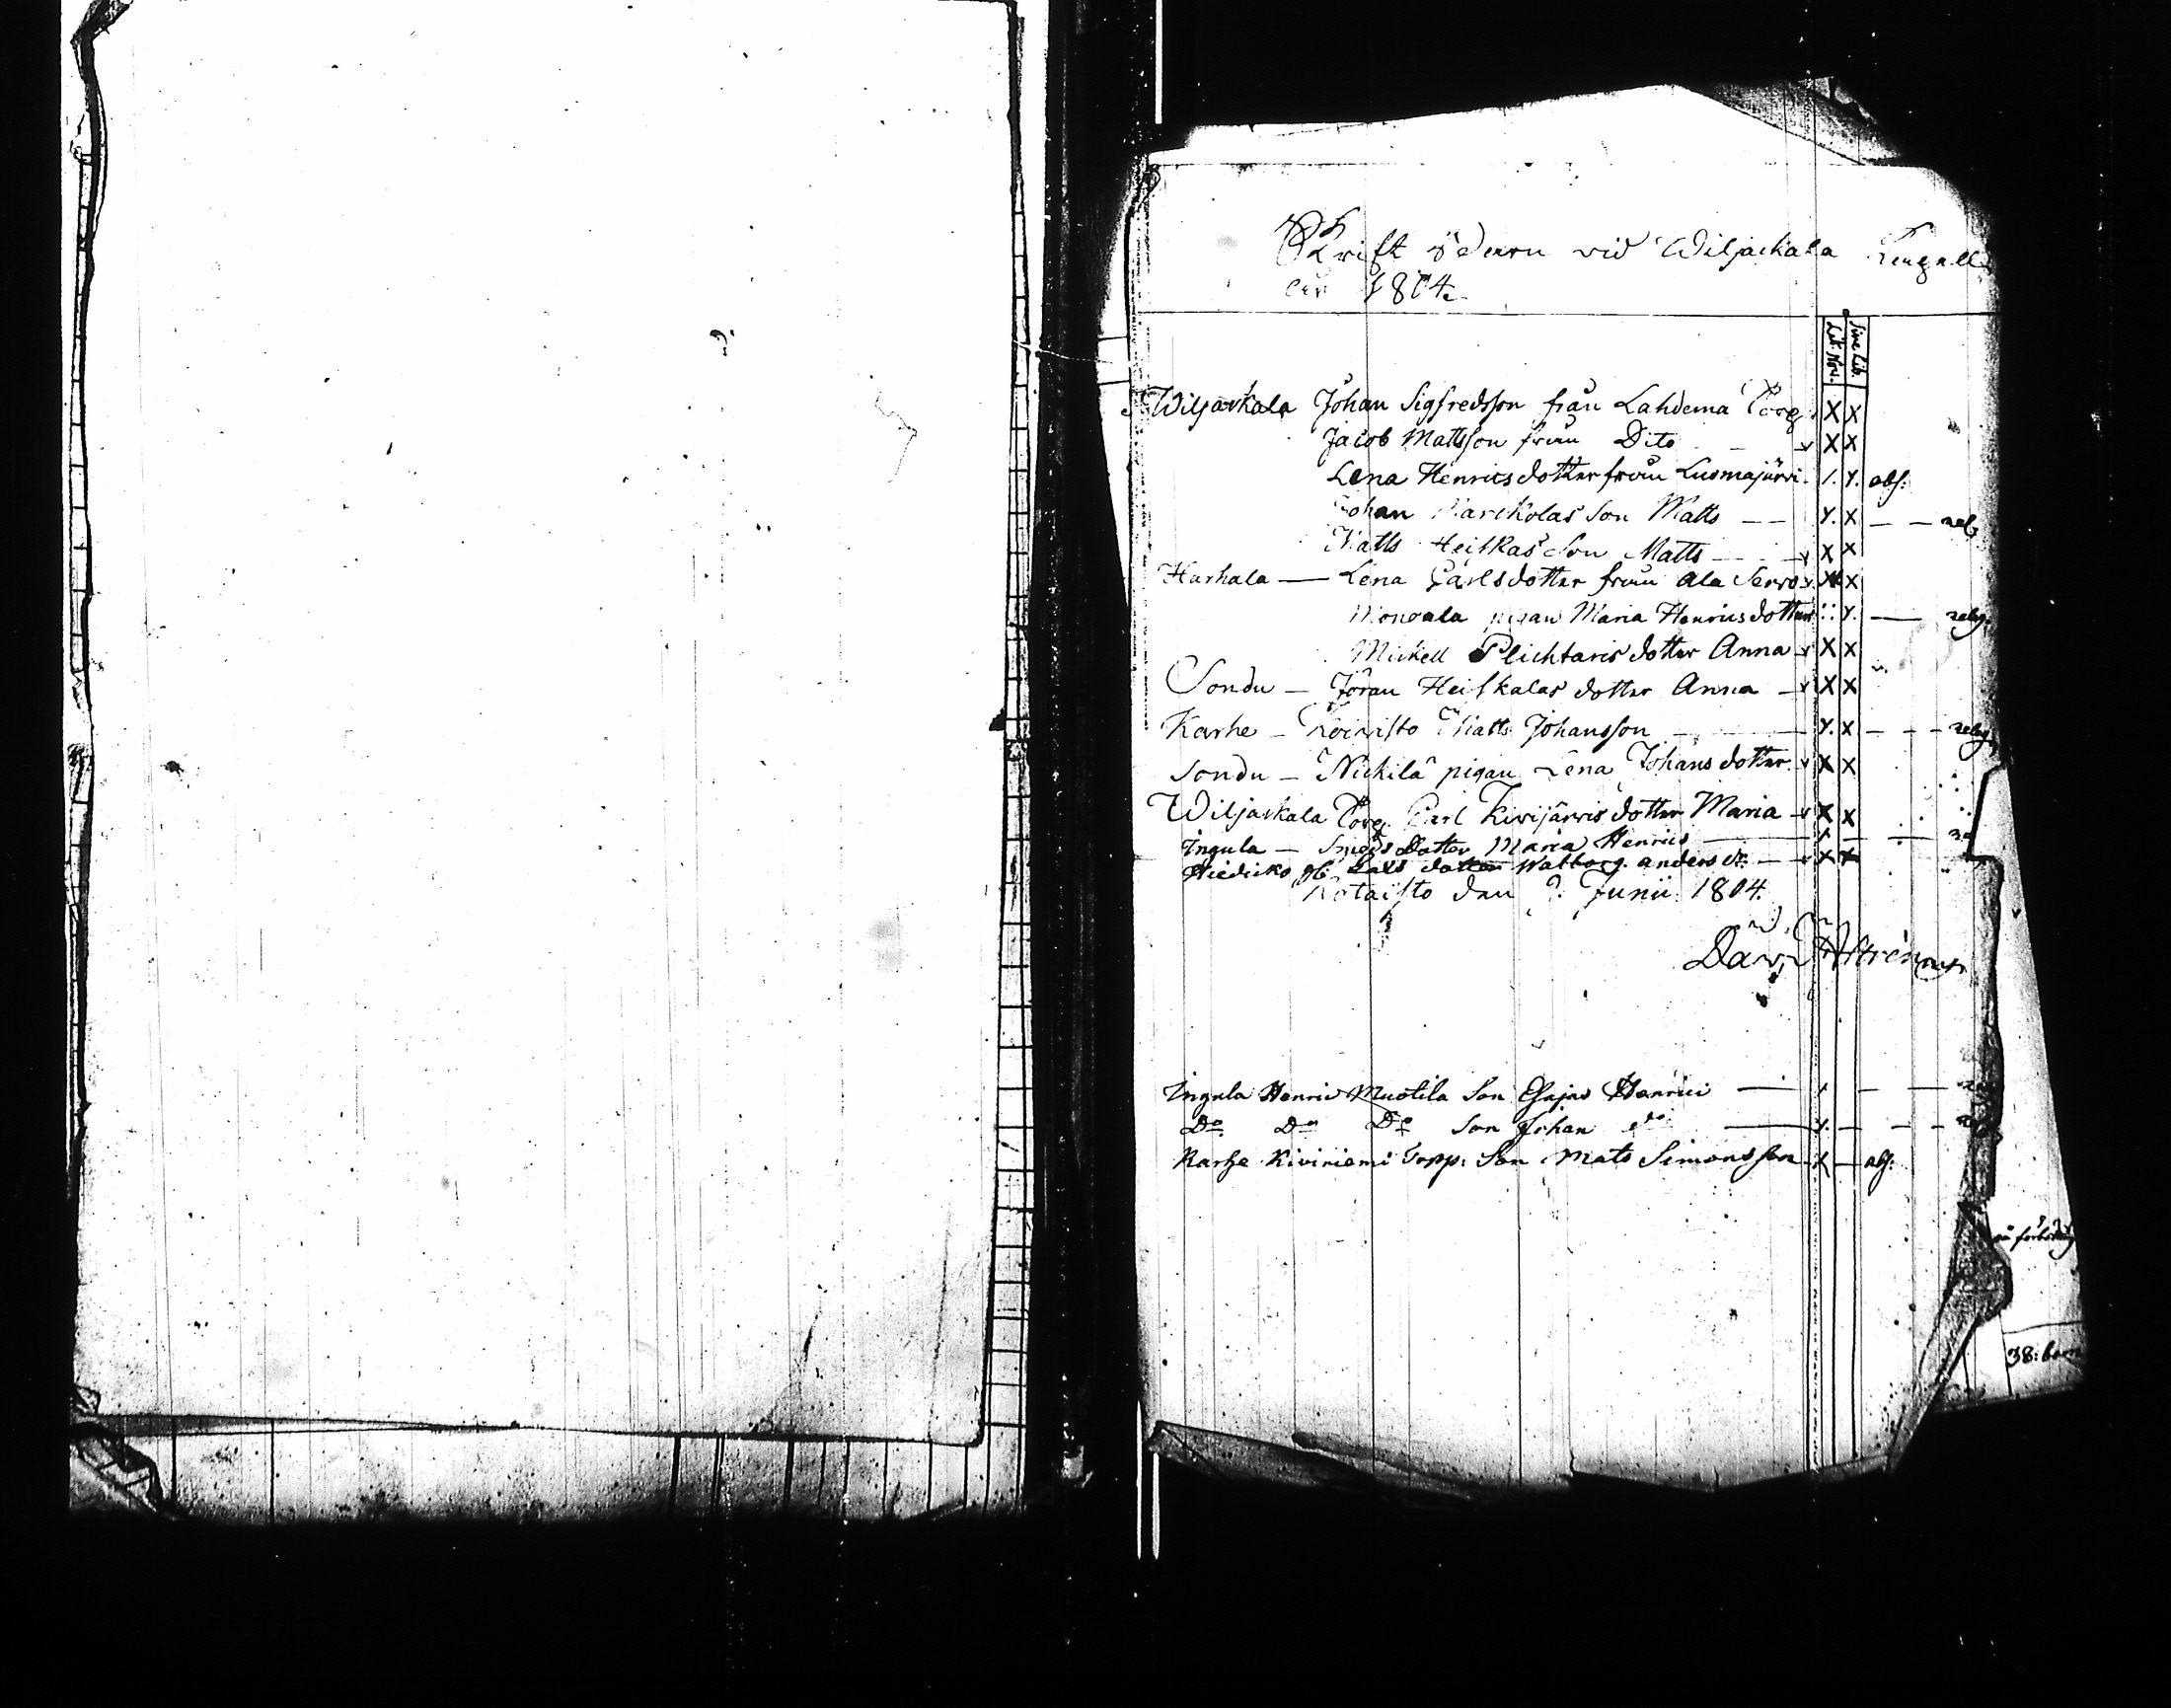 Skrift öfvarn vid Wiljackala Capell
år 1804.
Lit. Nov. Sine Lib.
Wiljackala Johan Sigfredsson från Lahdema Torp. X X
Jacob Mattsson från Dito — X X
Lena Henricsdotter från Luomajärvi. /. Y. abs:
Johan Marckolas Son Matts — — Y. X — — releg
Matts Heiskas Son Matts — — X X
Harhala — Lena Carlsdotter från Ala Serro X X
Monoala pigan Maria Henricsdotter Y. — releg.
Mickell Plichtaris dotter Anna X X
Sondu — Jöran Heiskalas dotter Anna — X X
Karhe — Koivisto Matts Johansson — Y. X — — — releg
Sondu — Nickilä pigan Lena Johansdotter X X
Wiljackala Torp. Carl Kivijärvis dotter Maria X X
Ingula — Smeds Dotter Maria Henrics —
Hiedicko Lars dotter Walborg anders dr. — X X
Kotaisto den Junii 1804.
David
Ingula Henric Muotila Son Esajas Henrici —
Do Do Do Son Johan do — Y. —
Karhe Kiviniemi Torpp: Son Mats Simonsson X — abs:
38: barn